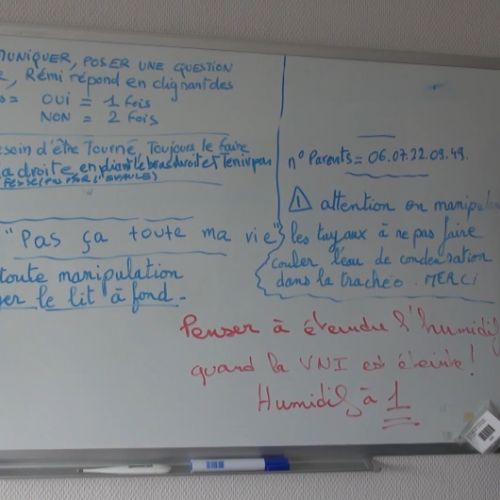 MUNIQUER, POSER UNE QUESTION
, Rémi répond en clignant des
OUI = 1 fois
NON = 2 fois
esoin d'être Tourné, Toujours le faire
a droite, en pliant le bras droit et Tenir par
"Pas ça toute ma vie"
toute manipulation
er le lit à fond.
n° Parents = 06.07.22.09.49.
⚠ attention en manipulan
les tuyaux à ne pas faire
couler l'eau de condensation
dans la trachéo. MERCI
Penser à éteindre l'humidif
quand la VNI est éteinte!
Humidif à 1